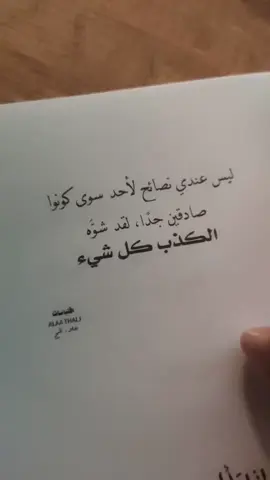 ليس عندي نصائح لأحد سوى كونوا
صادقين جدًا، لقد شوَّه
الكذب كل شيء
ALAA THALJ